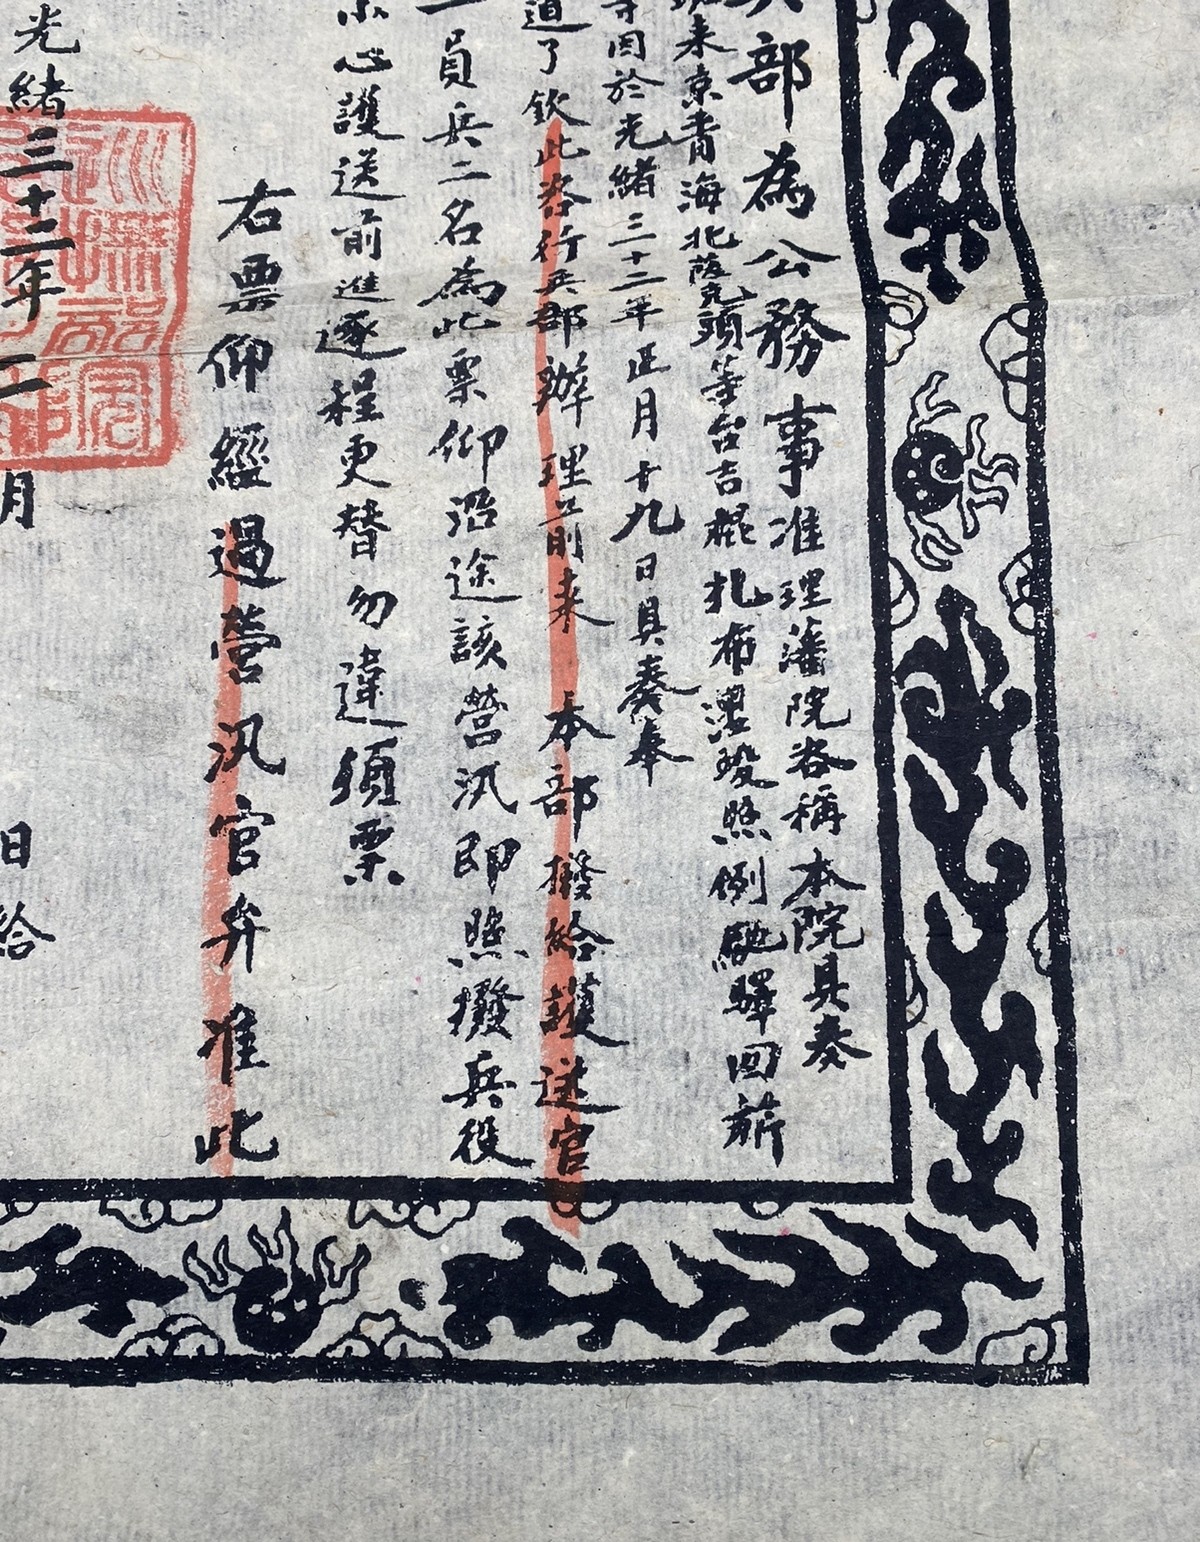 部為公務事准理藩院咨稱本院具奏
來京青海北蔭克頭等台吉棍札布濕瑖照例馳驛回斾
因於光緒三十二年正月十九日具奏奉
道了欽此咨行兵部辦理前來本部撥給護送官
一員兵二名為此票仰沿途該營汛即照撥兵役
小心護送前進逐程更替勿違須票
右票仰經過營汛官弁准此
光緒三十二年二月日給